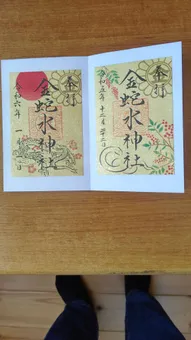 奉拝
令和五年十二月廿二日
金蛇水神社
奉拝
令和六年一
金蛇水神社